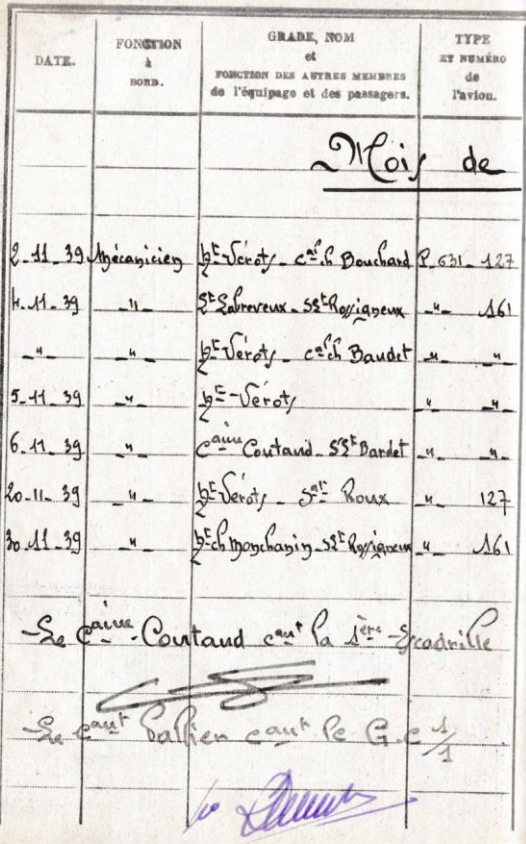 DATE. FONCTION à BORD. GRADE, NOM et FONCTION DES AUTRES MEMBRES de l'équipage et des passagers. TYPE ET NUMÉRO de l'avion.
Mois de
2-11-39 Mécanicien Lt Vérots - Cal ch Bouchard P. 631 - 127
4-11-39 -"- St Labreveux - SLt Rossigneux -"- 161
-"- -"- Lt Vérots - Cal ch Baudet -"- -"-
5-11-39 -"- Lt - Vérots " -"-
6.11.39 -"- Caine Coutaud - SLt Bardet -"- -"-
20-11-39 -"- Lt Vérots - Sgt Roux " 127
30.11-39 -"- Lt ch Monchanin - SLt Rossigneux " 161
Le Caine Coutaud Cant la 1ère Escadrille
Le Cant Cant le G.C 1/1